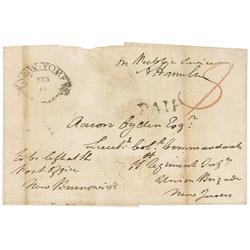 NEW-YORK
FEB
on Publick Service
A Hamilton
8
PAID
Aaron Ogden Esqr.
Lieut. Col. Commandant
Regiment Infy
Union Brigade
New Jersey
to be left at the
Post Office
New Brunswick